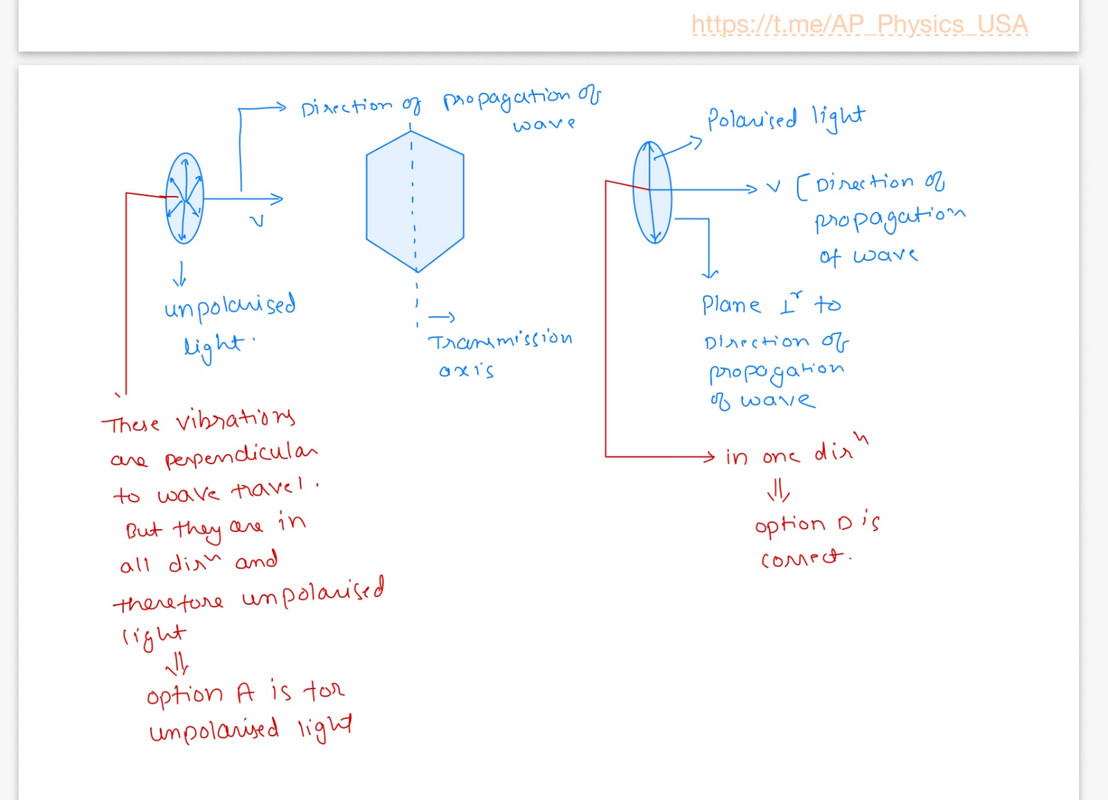 https://t.me/AP_Physics_USA
Direction of propagation of
wave
v
unpolarised
light.
Transmission
axis
Polarised light
v [Direction of
propagation
of wave
Plane ⊥r to
Direction of
propagation
of wave
These vibrations
are perpendicular
to wave travel.
But they are in
all dirn and
therefore unpolarised
light
⇓
option A is for
unpolarised light
in one dirn
⇓
option D is
correct.